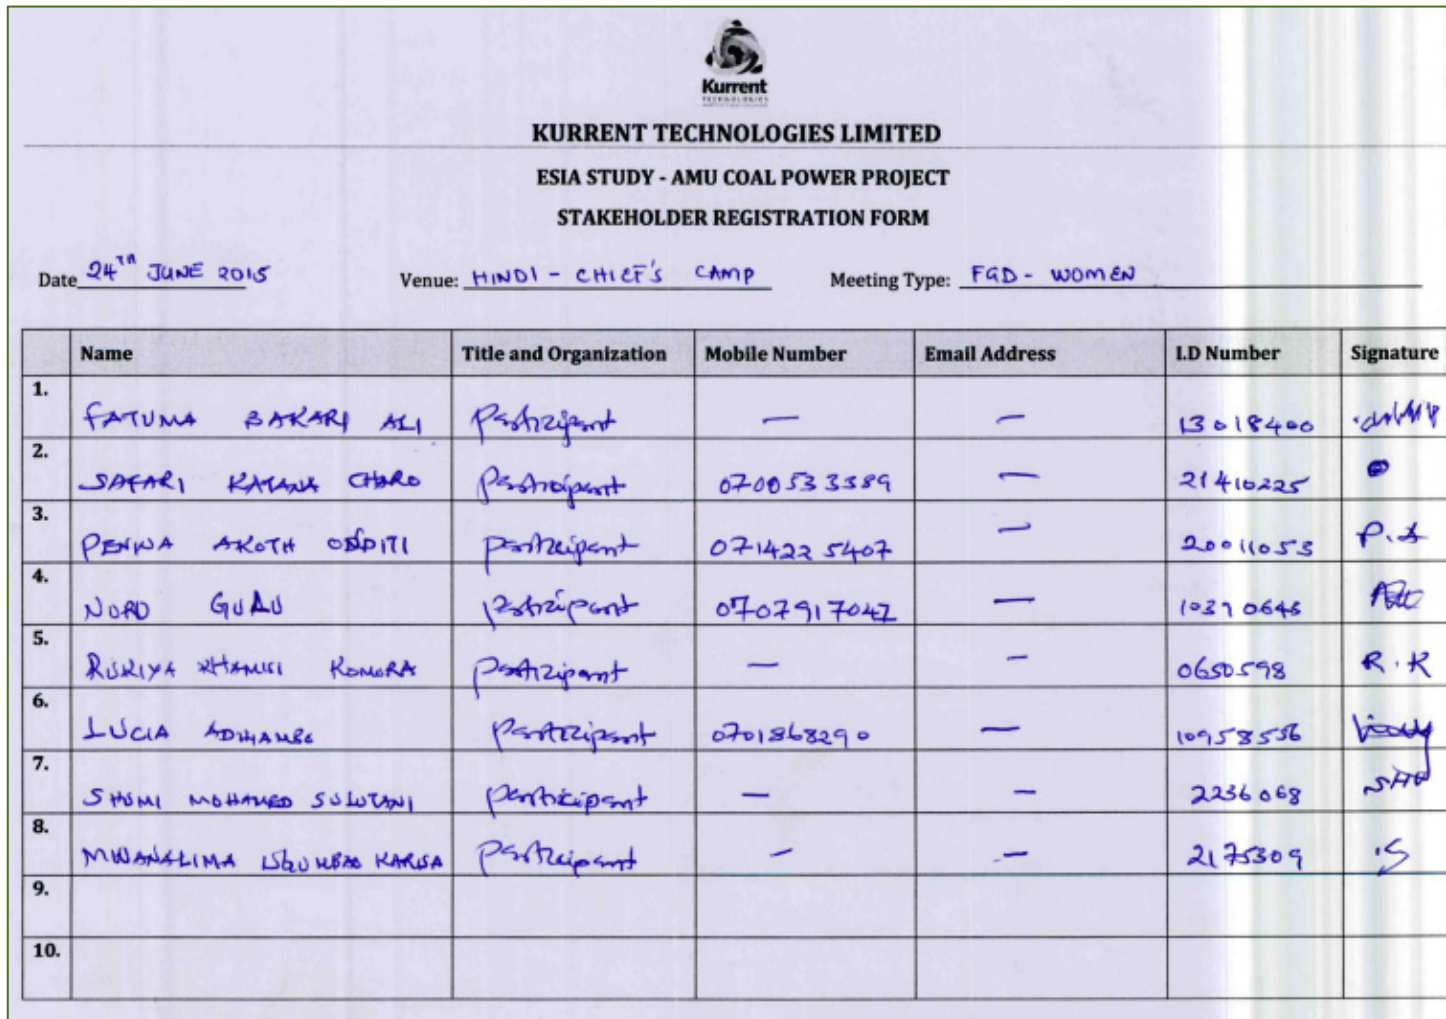 Kurrent
TECHNOLOGIES
KURRENT TECHNOLOGIES LIMITED
ESIA STUDY - AMU COAL POWER PROJECT
STAKEHOLDER REGISTRATION FORM
Date 24TH JUNE 2015 Venue: HINDI - CHIEF'S CAMP Meeting Type: FGD - WOMEN
Name Title and Organization Mobile Number Email Address I.D Number Signature
1. FATUMA BAKARI ALI Participant — — 13018400
2. SAFARI KATANA CHARO Participant 0700533389 — 21410225
3. PENINA AKOTH ODDITI Participant 0714225407 — 20011053 P.A
4. NURU GUDU Participant 0707917047 — 10390645
5. RUKIYA KHAMISI KOMORA Participant — — 0650598 R.K
6. LUCIA ADHIAMBO Participant 0701868290 — 10958556
7. SHUMI MOHAMED SULUTANI Participant — — 2236068
8. MWANALIMA KARISA Participant — — 2175309
9.
10.